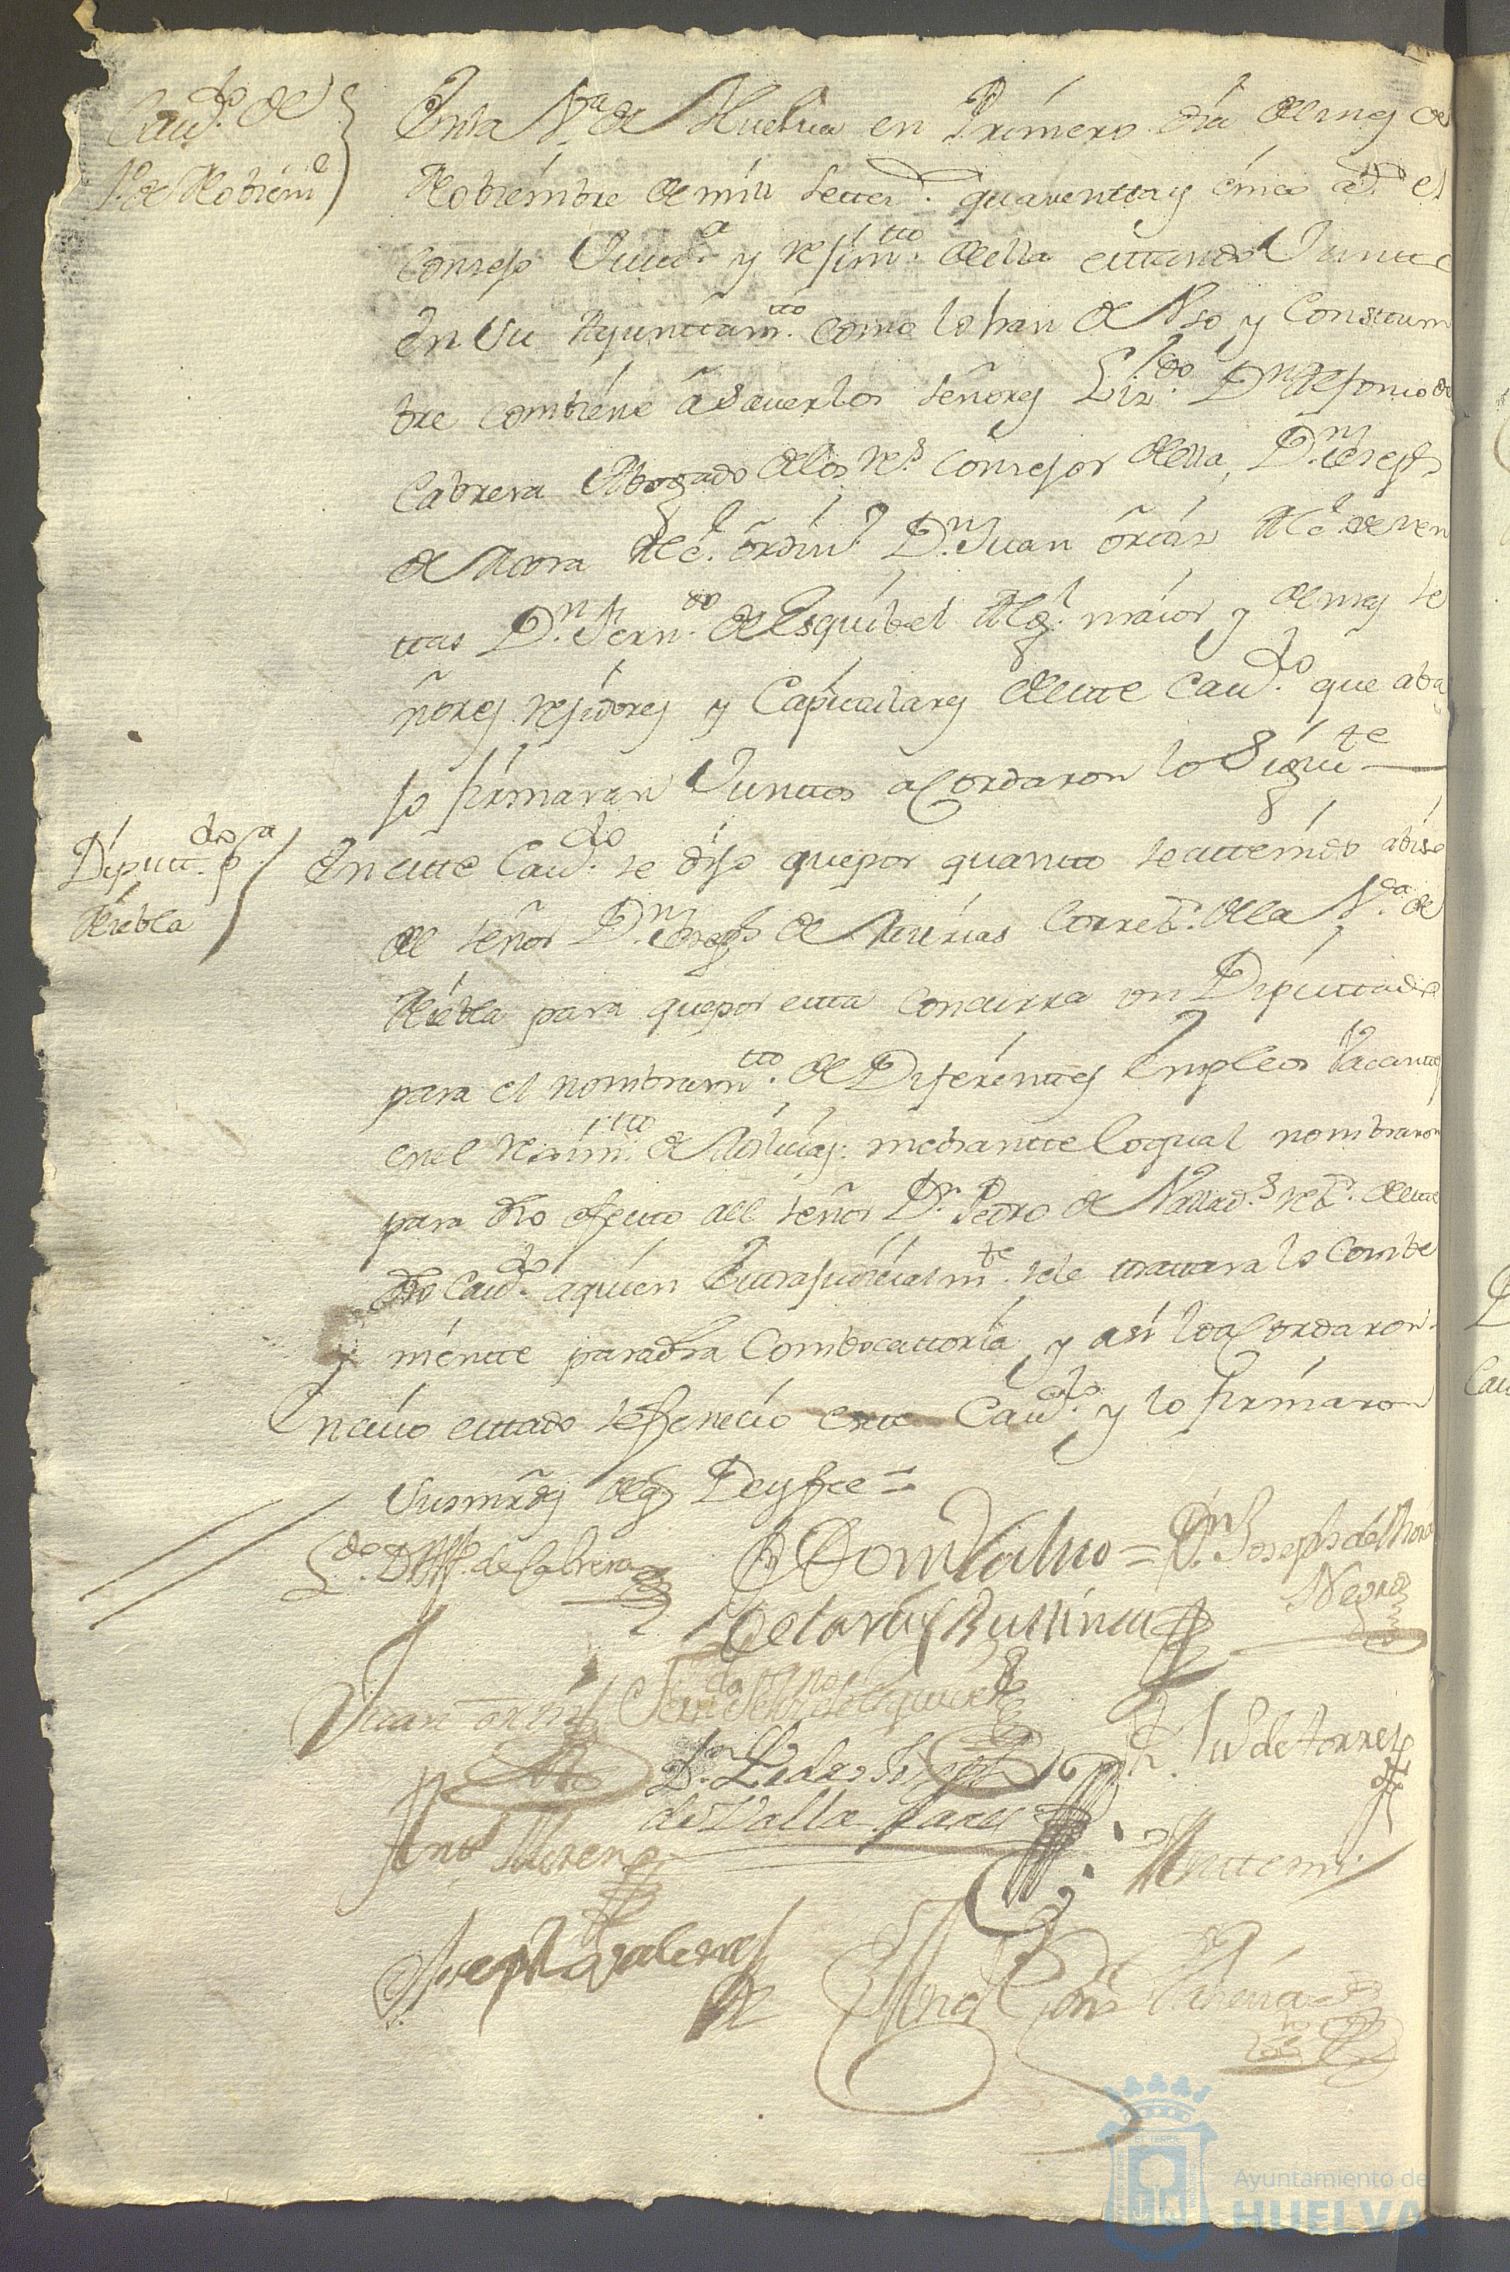 Cavdo. de
1º de Nobieme
En la Va. de Huelva en Primero dia del mes de
Nobiembre de mill settezs. quarentta y cinco as. el
Consejo Justa. y rejimtto. della esttando Juntto
en su Ayunttamtto. como lo han de Vso y Constum
bre combiene â saver los señores Lizdo. Dn. Ildefonso de
Cabrera Abogado de los Rs. Consejos della, Dn. Joseph
de Mora Alce. ôrdino. Dn. Juan ôrtiz Alce. de ren
ttas Dn. Ferndo. de Esquibel Algl. maior y demas se
ñores rejidores y Capitulares destte Cavdo. que aba
jo firmaran Junttos acordaron lo Siguite
Diputtdo. pa.
Niebla
En estte Cavdo. se dijo que por quantto se a ttenido abiso
del señor Dn. Joseph de Correxr. de la Va. de
Niebla para que por estta concurra un Diputtado
para el nombramtto. de Diferenttes Empleos Vacanttes
en el rejimtto. de Milicias: mediantte lo qual nombraron
para dho efectto al señor Dn. Pedro de Vallads. rexr. destte
dho Cavdo. a quien Extrajudicialmte. se le trattara lo combe
nientte para dha Combocattoria y asi lo acordaron.
En cuio esttado se fenecio este Cavdo. y lo firmaron
sus mrds. de q. Doy fee =
Ldo. D. Alfo. de Cabrera
Dn. Joseph de Mora
Negro
Juan ôrtiz
Dn. Pedro Joseph
de Valladares
Luis de torres
Anto. Moreno
Antte mi
Joseph
Ayuntamiento de
HUELVA